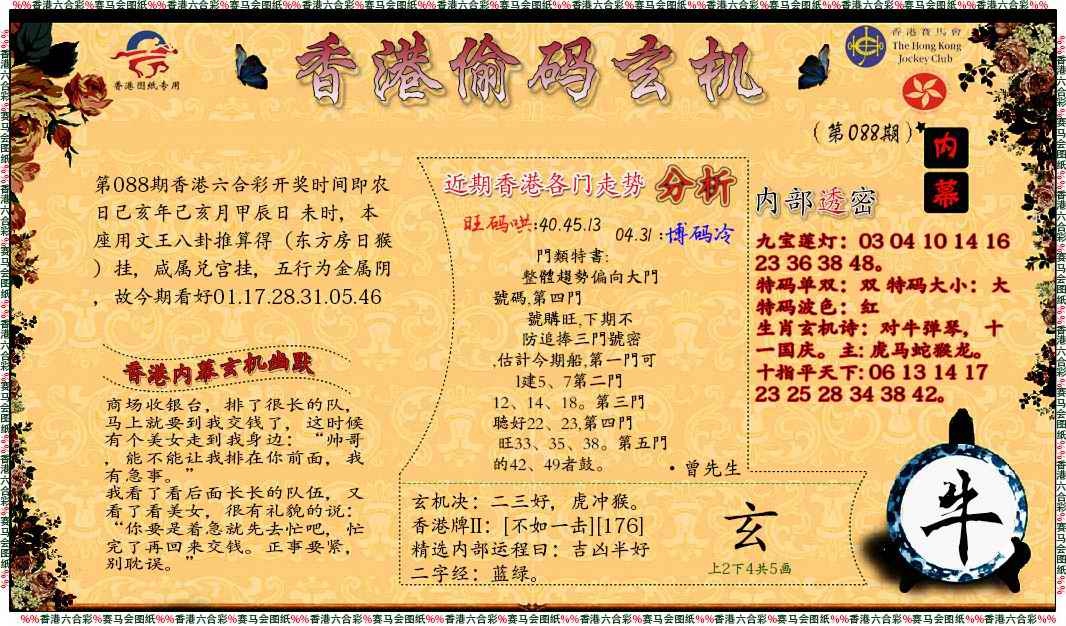 %%香港六合彩%赛马会图纸%%香港六合彩%赛马会图纸%%香港六合彩%赛马会图纸%%香港六合彩%赛马会图纸%%香港六合彩%赛马会图纸%%香港六合彩%赛马会图纸%%香港六合彩%赛马会图纸%%香港六合彩%%
香港图纸专用
香港偷码玄机
香港賽馬會
The Hong Kong
Jockey Club
（第088期）
内
幕
第088期香港六合彩开奖时间即农
日己亥年己亥月甲辰日 未时，本
座用文王八卦推算得（东方房日猴
）挂，咸属兑宫挂，五行为金属阴
，故今期看好01.17.28.31.05.46
香港内幕玄机幽默
商场收银台，排了很长的队，
马上就要到我交钱了，这时候
有个美女走到我身边：“帅哥
，能不能让我排在你前面，我
有急事。”
我看了看后面长长的队伍，又
看了看美女，很有礼貌的说：
“你要是着急就先去忙吧，忙
完了再回来交钱。正事要紧，
别耽误。”
近期香港各门走势 分析
旺码哄:40.45.13 04.31:博码冷
門類特書:
整體趨勢偏向大門
號碼,第四門
號購旺,下期不
防追捧三門號密
,估計今期船,第一門可
1建5、7第二門
12、14、18。第三門
聽好22、23,第四門
旺33、35、38。第五門
的42、49者鼓。
·曾先生
玄机决：二三好，虎冲猴。
香港牌II：[不如一击][176]
精选内部运程曰：吉凶半好
二字经：蓝绿。
玄
上2下4共5画
内部透密
九宝莲灯：03 04 10 14 16
23 36 38 48。
特码单双：双 特码大小：大
特码波色：红
生肖玄机诗：对牛弹琴，十
一国庆。主: 虎马蛇猴龙。
十指平天下: 06 13 14 17
23 25 28 34 38 42。
牛
%%香港六合彩%赛马会图纸%%香港六合彩%赛马会图纸%%香港六合彩%赛马会图纸%%香港六合彩%赛马会图纸%%香港六合彩%赛马会图纸%%香港六合彩%赛马会图纸%%香港六合彩%赛马会图纸%%香港六合彩%%